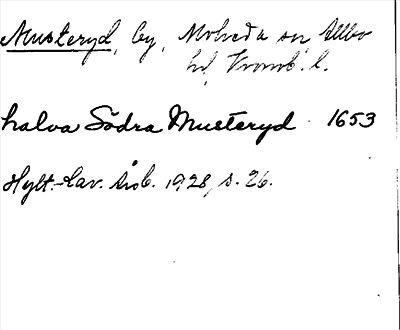 Musteryd, by, Moheda sn Allbo
hd, Kronob. l.
halva Södra Musteryd 1653
Hylt.-Cav. årsb. 1928, s. 26.